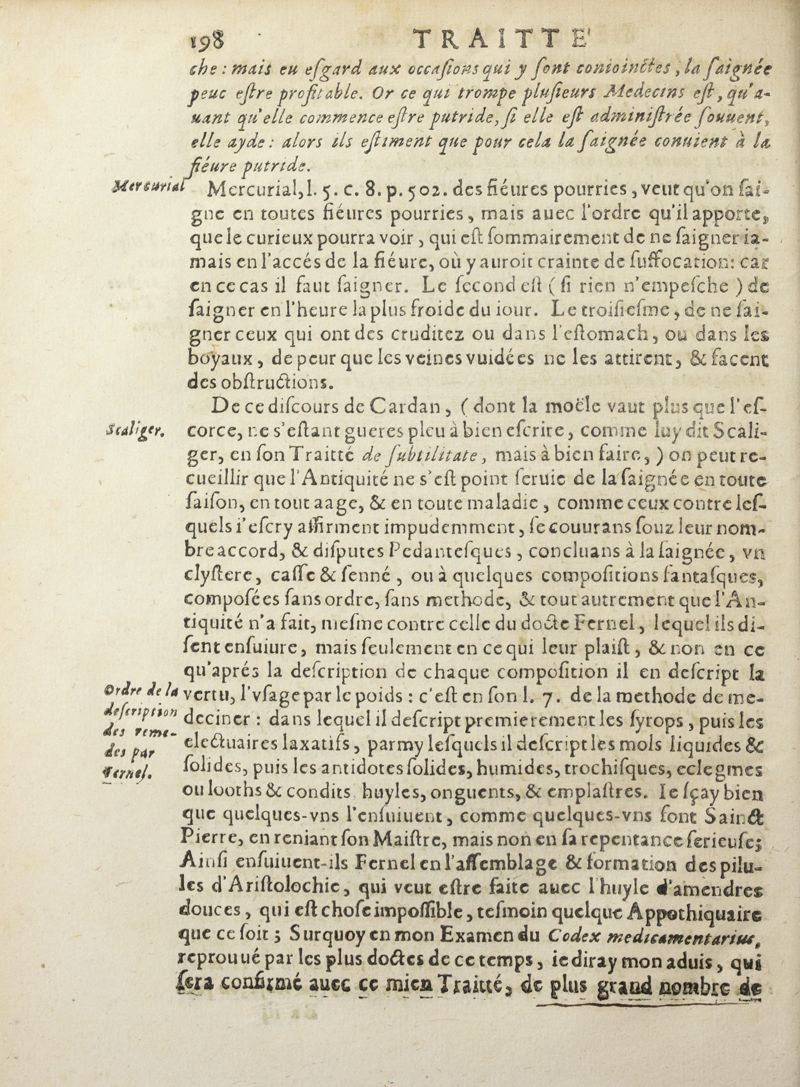 198 TRAITTE'
che : mais eu eſgard aux occaſions qui y ſont conioinctes, la ſaignée
peut eſtre profitable. Or ce qui trompe pluſieurs Medecins eſt, qu'a-
uant qu'elle commence eſtre putride, ſi elle eſt adminiſtrée ſouuent,
elle ayde : alors ils eſtiment que pour cela la ſaignée conuient à la
fiéure putride.
Mercurial
Mercurial, l. 5. c. 8. p. 502. des fiéures pourries, veut qu'on ſai-
gne en toutes fiéures pourries, mais auec l'ordre qu'il apporte,
que le curieux pourra voir, qui eſt ſommairement de ne ſaigner ia-
mais en l'accés de la fiéure, où y auroit crainte de ſuffocation: car
en ce cas il faut ſaigner. Le ſecond eſt (ſi rien n'empeſche) de
ſaigner en l'heure la plus froide du iour. Le troiſieſme, de ne ſai-
gner ceux qui ont des cruditez ou dans l'eſtomach, ou dans les
boyaux, de peur que les veines vuidées ne les attirent, & facent
des obſtructions.
De ce diſcours de Cardan, (dont la moëlle vaut plus que l'eſ-
Scaliger.
corce, ne s'eſtant gueres pleu à bien eſcrire, comme luy dit Scali-
ger, en ſon Traitté de ſubtilitate, mais à bien faire,) on peut re-
cueillir que l'Antiquité ne s'eſt point ſeruie de la ſaignée en toute
ſaiſon, en tout aage, & en toute maladie, comme ceux contre leſ-
quels i'eſcry affirment impudemment, ſe couurans ſouz leur nom-
bre accord, & diſputes Pedanteſques, concluans à la ſaignée, vn
clyſtere, caſſe & ſenné, ou à quelques compoſitions fantaſques,
compoſées ſans ordre, ſans methode, & tout autrement que l'An-
tiquité n'a fait, meſme contre celle du docte Fernel, lequel ils di-
ſent enſuiure, mais ſeulement en ce qui leur plaiſt, & non en ce
qu'aprés la deſcription de chaque compoſition il en deſcript la
Ordre de la deſcription des remedes par Fernel.
vertu, l'vſage par le poids : c'eſt en ſon l. 7. de la methode de me-
deciner : dans lequel il deſcript premierement les ſyrops, puis les
electuaires laxatifs, parmy leſquels il deſcript les mols liquides &
ſolides, puis les antidotes ſolides, humides, trochiſques, eclegmes
ou looths & condits huyles, onguents, & emplaſtres. Ie ſçay bien
que quelques-vns l'enſuiuent, comme quelques-vns font Sainct
Pierre, en reniant ſon Maiſtre, mais non en ſa repentance ſerieuſe;
Ainſi enſuiuent-ils Fernel en l'aſſemblage & formation des pilu-
les d'Ariſtolochie, qui veut eſtre faite auec l'huyle d'amendres
douces, qui eſt choſe impoſſible, teſmoin quelque Appothiquaire
que ce ſoit ; Surquoy en mon Examen du Codex medicamentarius,
reprouué par les plus doctes de ce temps, ie diray mon aduis, qui
ſera confirmé auec ce mien Traitté, de plus grand nombre de